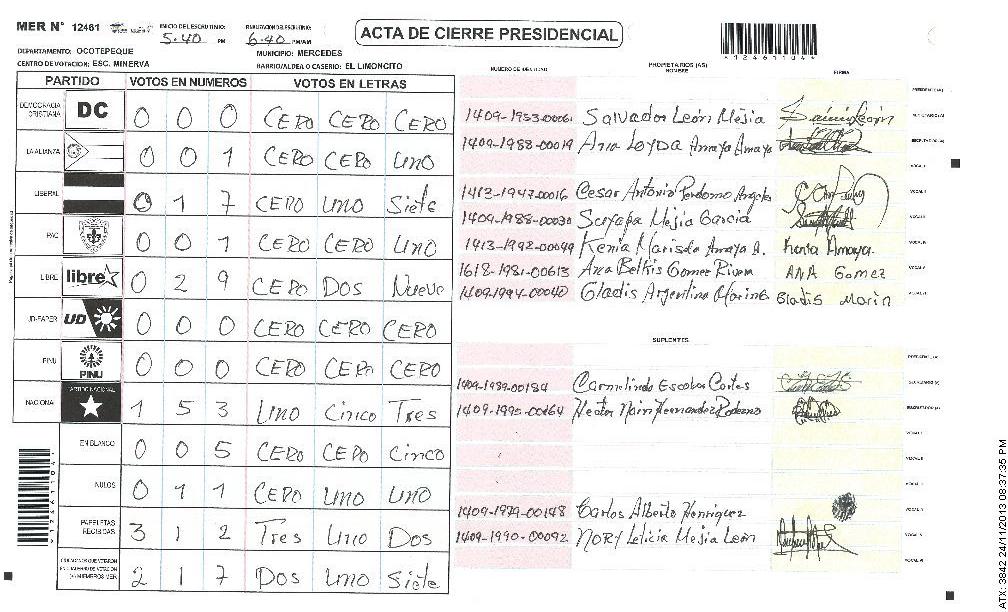 MER N° 12461 INICIO DEL ESCRUTINIO: 5:40 PM FINALIZACION DEL ESCRUTINIO: 6:40 PM/AM
ACTA DE CIERRE PRESIDENCIAL
DEPARTAMENTO: OCOTEPEQUE MUNICIPIO: MERCEDES
CENTRO DE VOTACION: ESC. MINERVA BARRIO/ALDEA O CASERIO: EL LIMONCITO
PARTIDO VOTOS EN NUMEROS VOTOS EN LETRAS
DEMOCRACIA CRISTIANA DC 0 0 0 CERO CERO CERO
LA ALIANZA 0 0 1 CERO CERO UNO
LIBERAL 0 1 7 CERO UNO Siete
PAC 0 0 1 CERO CERO UNO
LIBRE libre 0 2 9 CERO DOS Nueve
UD-FAPER UD 0 0 0 CERO CERO CERO
PINU PINU 0 0 0 CERO CERO CERO
NACIONAL PARTIDO NACIONAL 1 5 3 UNO Cinco Tres
EN BLANCO 0 0 5 CERO CERO Cinco
NULOS 0 1 1 CERO UNO UNO
PAPELETAS RECIBIDAS 3 1 2 Tres Uno Dos
CIUDADANOS QUE VOTARON EN CUADERNO DE VOTACION (+) MIEMBROS MER 2 1 7 DOS UNO Siete
NUMERO DE IDENTIDAD PROPIETARIOS (AS) NOMBRE FIRMA
1409-1953-00061 Salvador León Mejia
1409-1988-00019 Ana Loyda Amaya Amaya
1413-1947-00016 Cesar Antonio Perdomo
1409-1988-00030 Sayapa Mejia Garcia
1413-1992-00099 Kenia Marisela Amaya A. Kenia Amaya
1618-1981-00613 Ana Belkis Gomez Rivera ANA Gomez
1409-1994-00040 Gladis Argentina Gladis Marin
SUPLENTES
1409-1989-00184 Carmelindo Escobar Cortes
1409-1990-00164 Hector Hernandez
1409-1979-00148 Carlos Alberto Henriquez
1409-1990-00092 NORY Leticia Mejia León
*1246110 4*
ATX: 3842 24/11/2013 08:37:35 PM